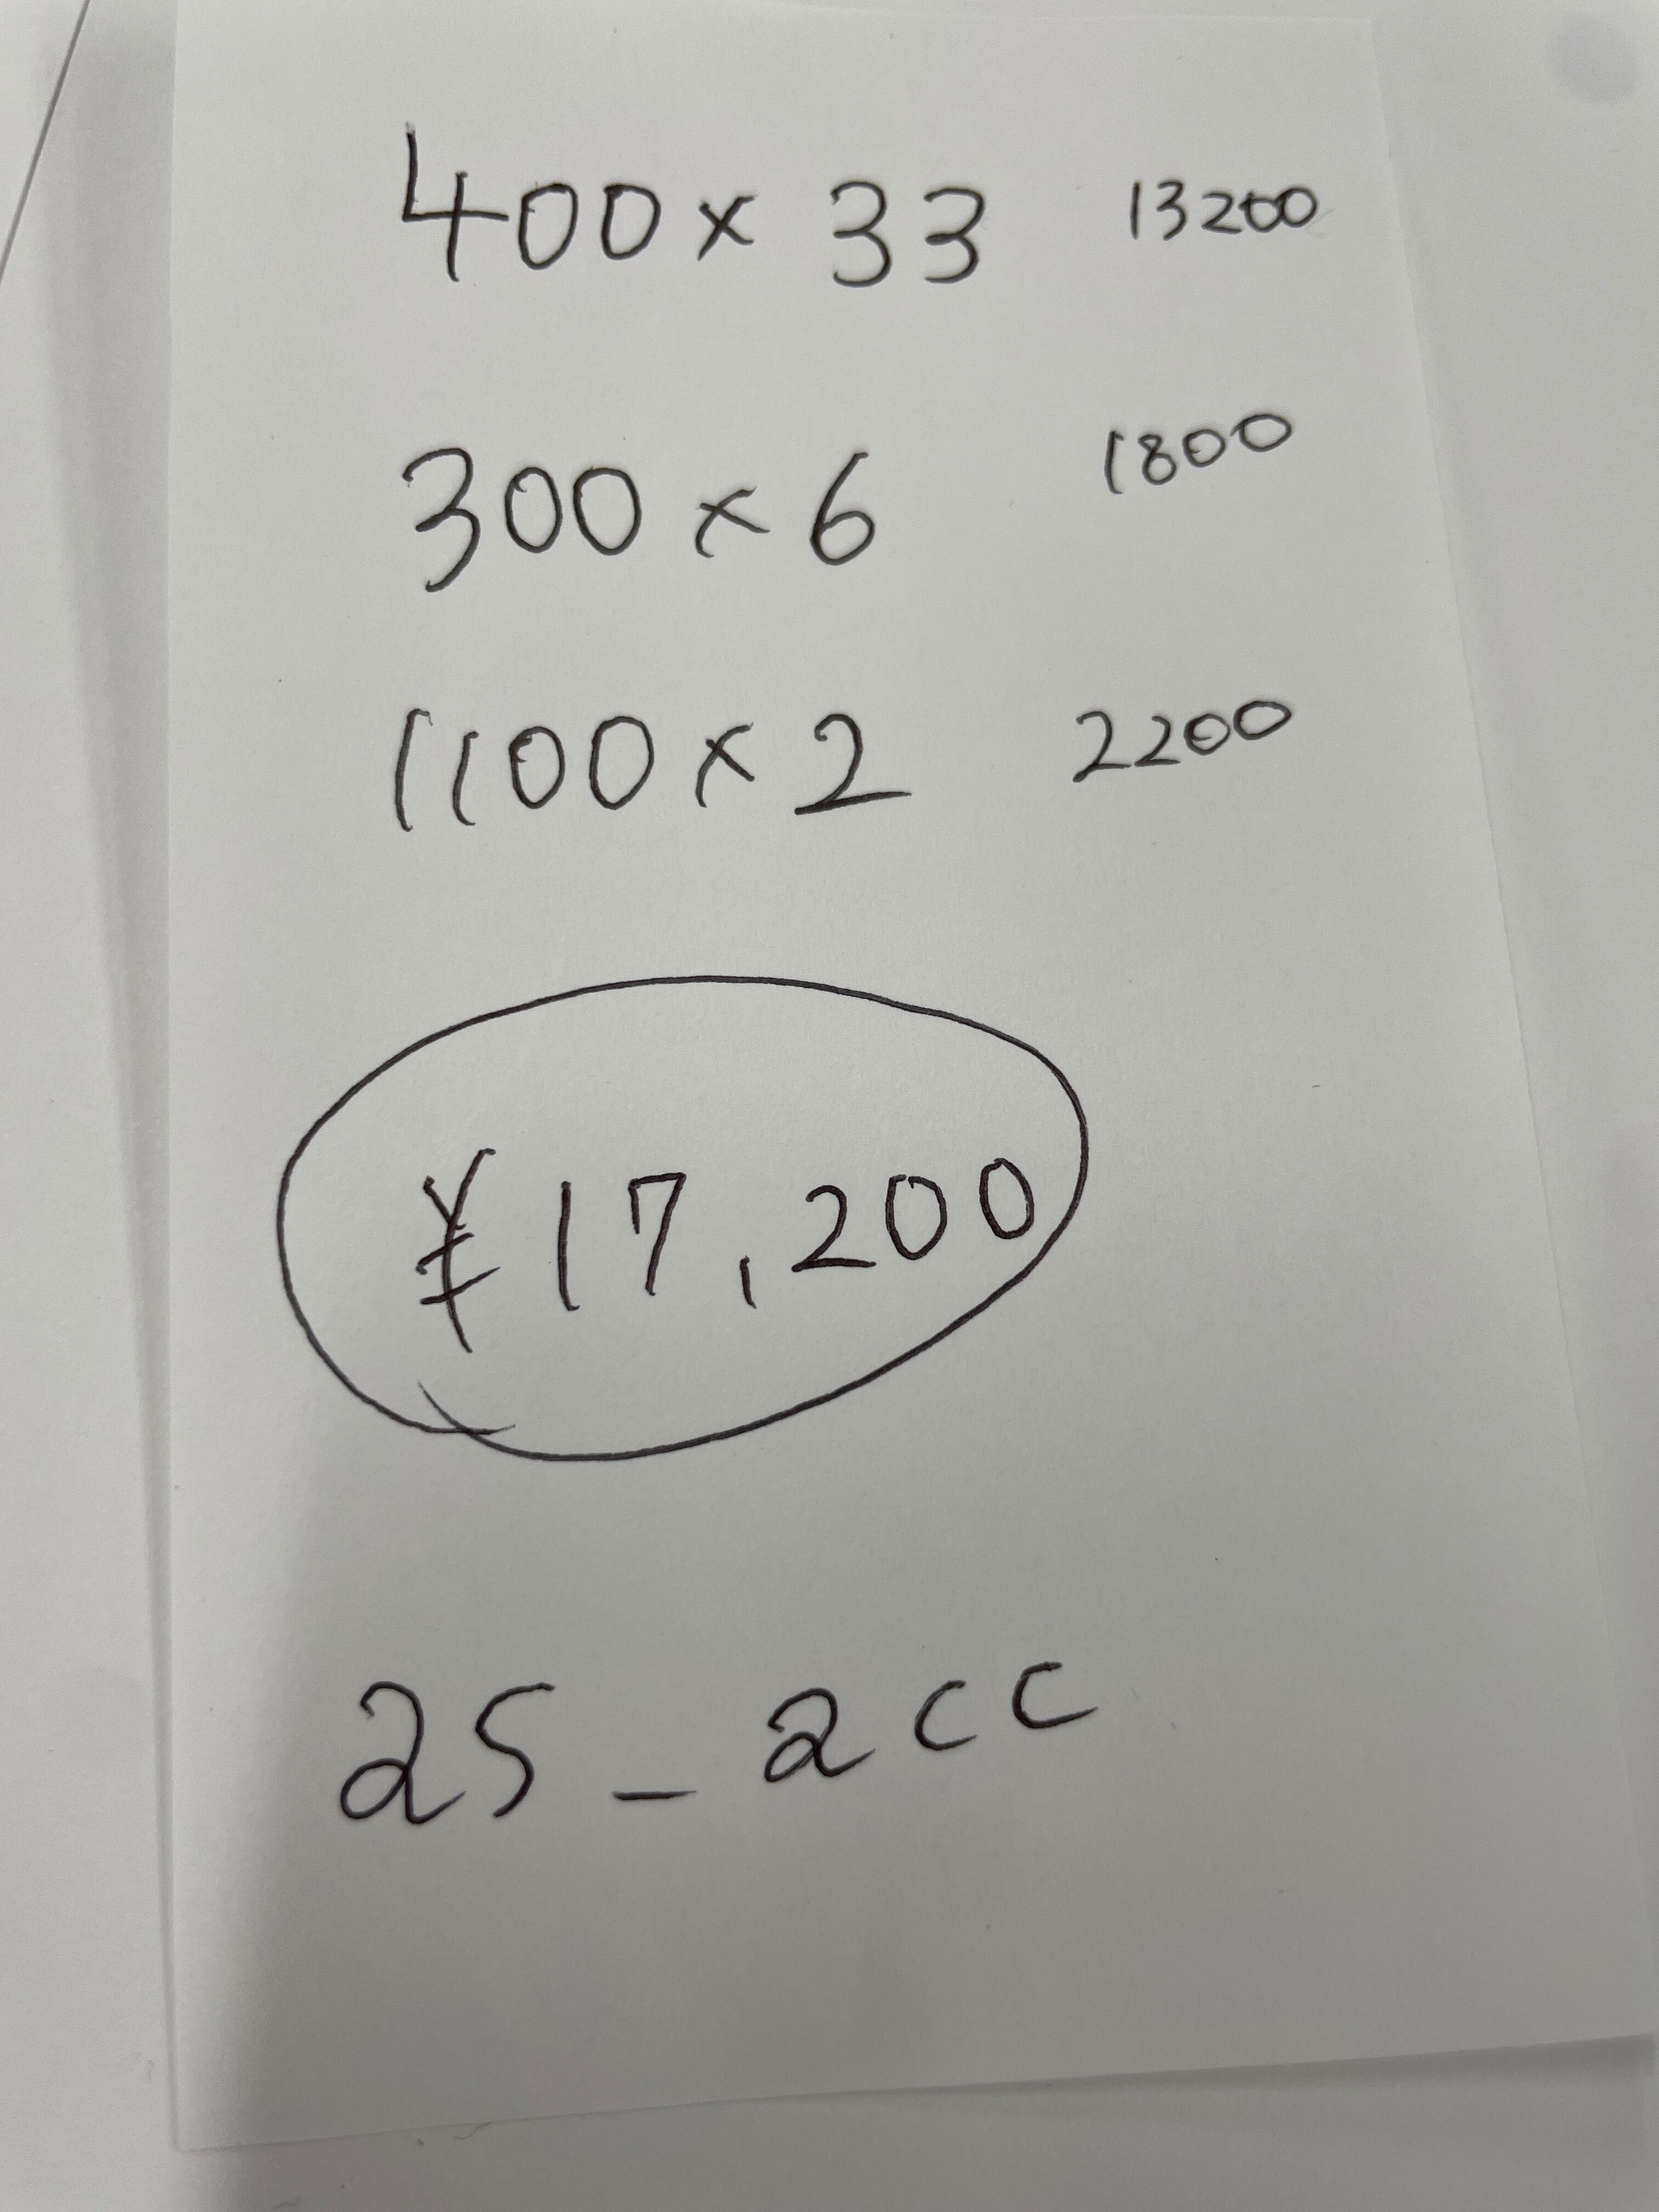 400 × 33 13200
300 × 6 1800
1100 × 2 2200
¥17,200
25_2cc